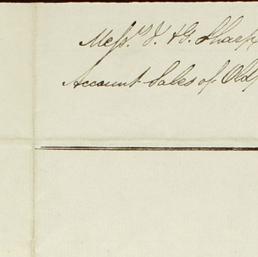 Messrs. J. & G. Sharp
Account Sales of Old